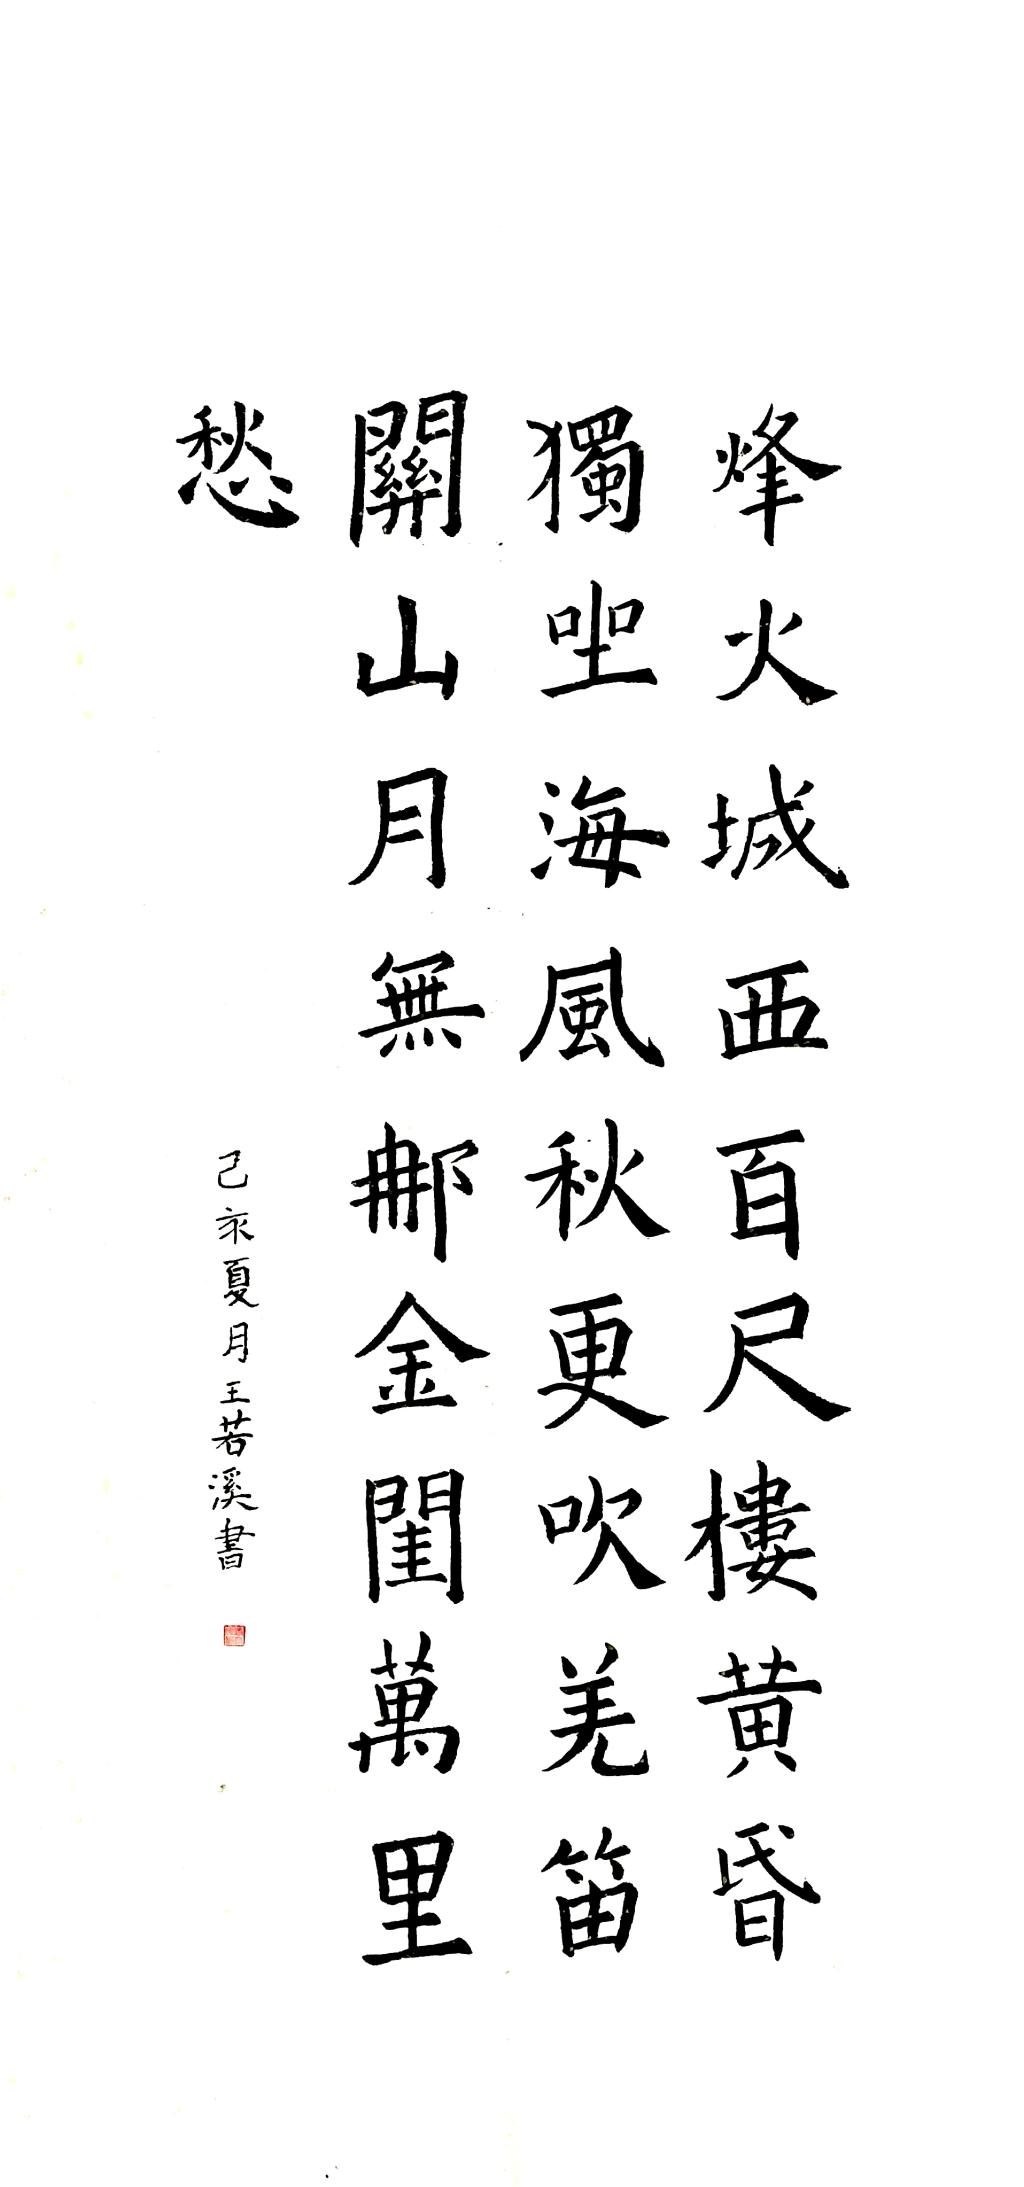 烽火城西百尺樓黄昏
獨坐海風秋更吹羌笛
關山月無那金閨萬里
愁
己亥夏月王若溪書